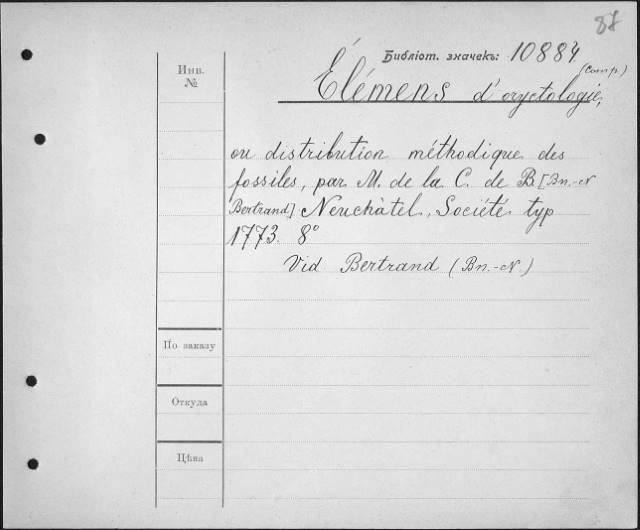 87
Библіот. значекъ: 10884
(comp.)
Инв.
№
Élémens d'oryctologie,
ou distribution méthodique des
fossiles, par M. de la C. de B. [Bn.-N
Bertrand] Neuchâtel, Société typ
1773. 8°
Vid Bertrand (Bn.-N.)
По заказу
Откуда
Цѣна